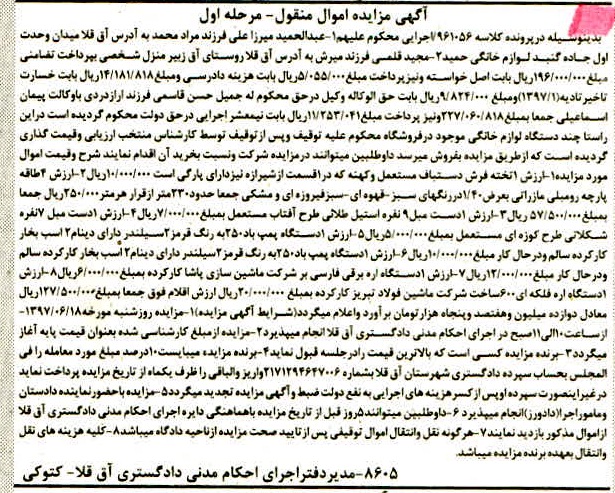 آگهی مزایده اموال منقول- مرحله اول
بدینوسیله در پرونده کلاسه ۹۶۱۰۵۶/اجرایی محکوم علیهم۱-عبدالحمید میرزا علی فرزند مراد محمد به آدرس آق قلا میدان وحدت
اول جاده گنبد لوازم خانگی حمید۲-مجید قلمی فرزند میرش به آدرس آق قلا روستای آق زبیر منزل شخصی بپرداخت تضامنی
مبلغ ۱۹۶/۰۰۰/۰۰۰ریال بابت اصل خواسته ونیز پرداخت مبلغ ۵/۰۵۵/۰۰۰ریال بابت هزینه دادرسی ومبلغ ۱۴/۱۸۱/۸۱۸ریال بابت خسارت
تاخیر تادیه(۱۳۹۷/۱)ومبلغ ۹/۸۲۴/۰۰۰ریال بابت حق الوکاله وکیل درحق محکوم له جمیل حسن قاسمی فرزند ارازدردی باوکالت پیمان
اسماعیلی جمعا بمبلغ ۲۲۷/۰۶۰/۸۱۸ونیز پرداخت مبلغ ۱۱/۲۵۳/۰۴۱ریال بابت نیمعشر اجرایی درحق دولت محکوم گردیده است دراین
راستا چند دستگاه لوازم خانگی موجود درفروشگاه محکوم علیه توقیف وپس ازتوقیف توسط کارشناس منتخب ارزیابی وقیمت گذاری
گردیده است که ازطریق مزایده بفروش میرسد داوطلبین میتوانند درمزایده شرکت ونسبت بخرید آن اقدام نمایند شرح وقیمت اموال
مورد مزایده۱-ارزش ۱تخته فرش دستباف مستعمل وکهنه که در۱قسمت ازشیرازه نیزدارای پارگی است ۱۰/۰۰۰/۰۰۰ریال۲-ارزش ۴طاقه
پارچه رومبلی مازراتی بعرض۱/۴۰دررنگهای سبز-قهوه ای-سبزفیروزه ای و مشکی جمعا حدود۲۳۰متر ازقرار هرمتر ۲۵۰/۰۰۰ریال جمعا
بمبلغ ۵۷/۵۰۰/۰۰۰ ریال۳-ارزش ۱دست مبل۹ نفره استیل طلائی طرح آفتاب مستعمل بمبلغ۷/۰۰۰/۰۰۰ریال۴-ارزش ۱دست مبل ۷نفره
شکلاتی طرح کوزه ای مستعمل بمبلغ ۵/۰۰۰/۰۰۰ریال۵-ارزش ۱دستگاه پمپ باد۲۵۰به رنگ قرمز۲سیلندر دارای دینام۲ اسب بخار
کارکرده سالم ودرحال کار مبلغ ۱۰/۰۰۰/۰۰۰ریال۶-ارزش ۱دستگاه پمپ باد۲۵۰به رنگ قرمز۲سیلندر دارای دینام۲اسب بخار کارکرده سالم
ودرحال کار مبلغ ۱۲/۰۰۰/۰۰۰ریال۷-ارزش ۱دستگاه اره برقی فارسی بر شرکت ماشین سازی پاشا کارکرده بمبلغ۶/۰۰۰/۰۰۰ریال۸-ارزش
۱دستگاه اره فلکه ای ۶۰۰ساخت شرکت ماشین فولاد تبریز کارکرده بمبلغ ۲۰/۰۰۰/۰۰۰ریال ارزش اقلام فوق جمعا بمبلغ۱۲۷/۵۰۰/۰۰۰ریال
معادل دوازده میلیون وهفتصد وپنجاه هزار تومان برآورد واعلام میگردد(شرایط آگهی مزایده)۱-مزایده روزشنبه مورخه۱۳۹۷/۰۶/۱۸-
ازساعت۱۰الی۱۱صبح در اجرای احکام مدنی دادگستری آق قلا انجام میپذیرد۲-مزایده ازمبلغ کارشناسی شده بعنوان قیمت پایه آغاز
میگردد۳-برنده مزایده کسی است که بالاترین قیمت رادرجلسه قبول نماید۴-برنده مزایده میبایست۱۰درصد مبلغ مورد معامله را فی
المجلس بحساب سپرده دادگستری شهرستان آق قلا بشماره ۲۱۷۱۲۹۴۶۴۷۰۰۶واریز والباقی را ظرف یکماه از تاریخ مزایده پرداخت نماید
درغیراینصورت سپرده او پس از کسرهزینه های اجرایی به نفع دولت ضبط وآگهی مزایده تجدید میگردد۵-مزایده باحضورنماینده دادستان
وماموراجرا(دادورز)انجام میپذیرد ۶-داوطلبین میتوانند۵روز قبل از تاریخ مزایده باهماهنگی دایره اجرای احکام مدنی دادگستری آق قلا
ازاموال مذکور بازدید نمایند۷-هرگونه نقل وانتقال اموال توقیفی پس ازتایید صحت مزایده ازناحیه دادگاه میباشد۸-کلیه هزینه های نقل
وانتقال بعهده برنده مزایده میباشد.
۸۶۰۵-مدیر دفتر اجرای احکام مدنی دادگستری آق قلا- کتوکی